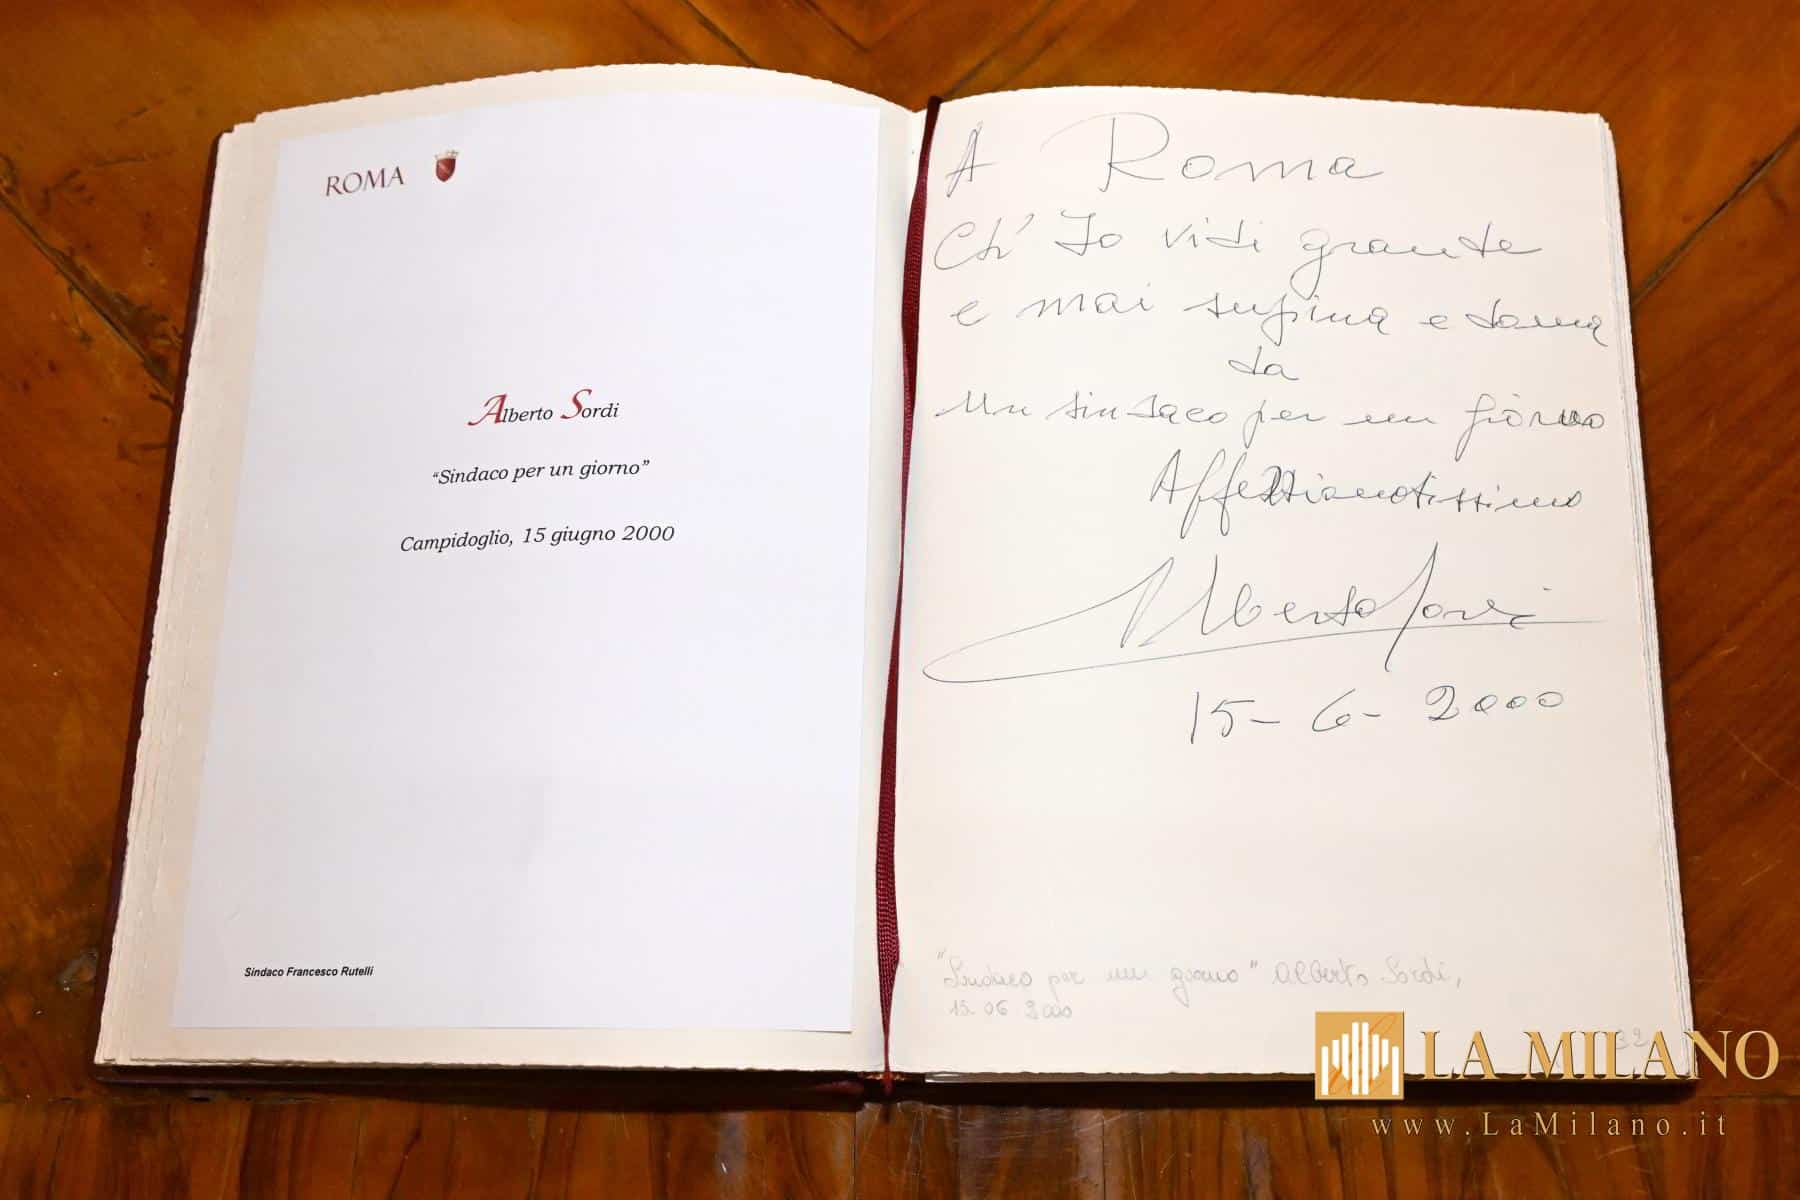 ROMA
Alberto Sordi
“Sindaco per un giorno”
Campidoglio, 15 giugno 2000
Sindaco Francesco Rutelli
A Roma
Ch' Io vidi grande
e mai supina e doma
da
un sindaco per un giorno
Affezzionatissimo
Alberto Sordi
15-6-2000
"Sindaco per un giorno" Alberto Sordi,
15.06.2000
32
LA MILANO
www.LaMilano.it